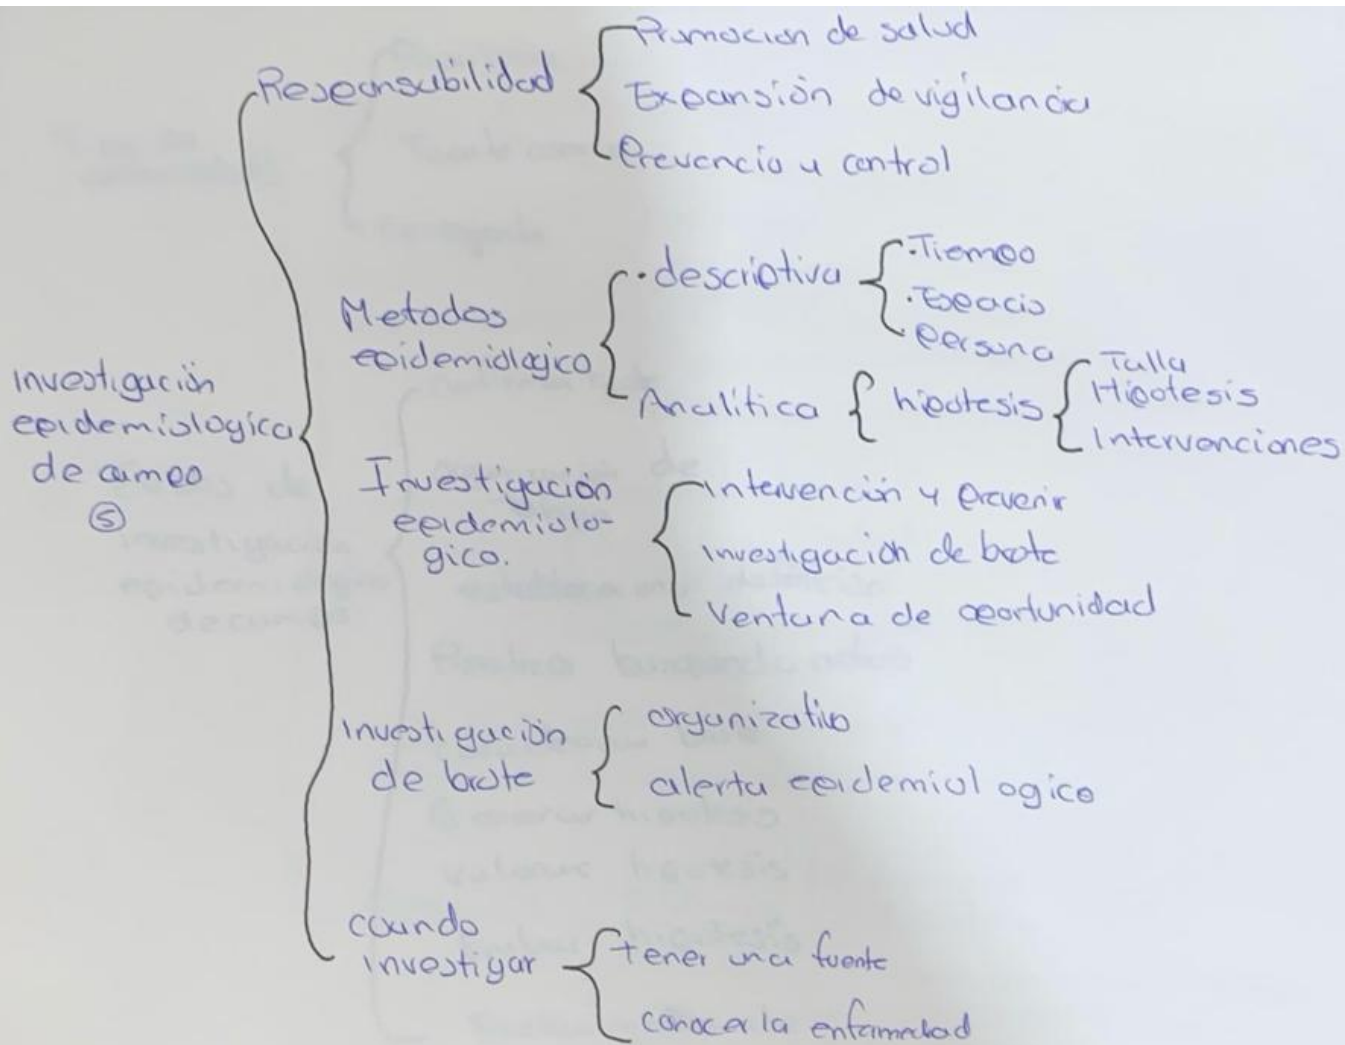 Responsabilidad
Promocion de salud
Expansión de vigilancia
Prevencia y control
Investigación
epidemiologica
de campo
5
Metodos
epidemiologico
· descriptiva
· Tiempo
· Espacio
· Persona
Analítica
hipotesis
Talla
Hipotesis
Intervenciones
Investigación
epidemiolo-
gico.
intervención y prevenir
investigación de brote
Ventana de oportunidad
investigación
de brote
organizativo
alerta epidemiologico
cuando
investigar
tener una fuente
conocer la enfermedad